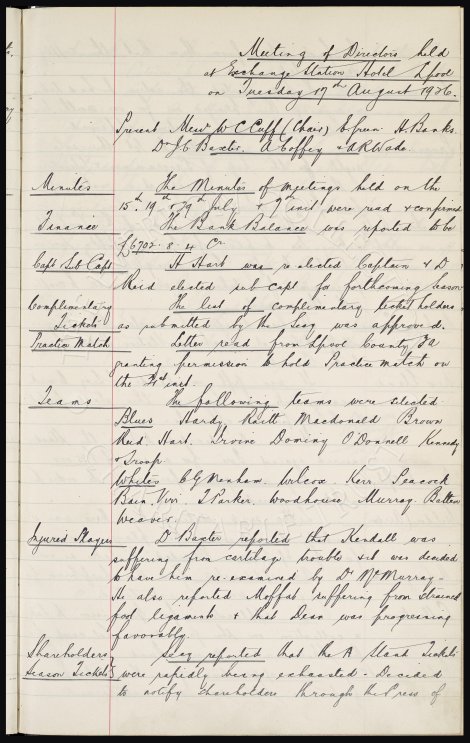 Meeting of Directors held
at Exchange Station Hotel Lpool
on Tuesday 17th August 1926.
Present Messrs W C Cuff (Chair) E Green H. Banks.
Dr J C Baxter, A Coffey & A R Wade.
Minutes The Minutes of meetings held on the
15th, 19th & 29th July & 9th inst were read & confirmed
Finance The Bank Balance was reported to be
£6702 . 8 . 4 Cr
Capt & Sub Capt H Hart was re-elected Captain & D
Reid elected sub capt for forthcoming season
Complimentary The list of complimentary ticket holders
Tickets as submitted by the Secy was approved.
Practice Match Letter read from Lpool County FA
granting permission to hold Practice match on
the inst.
Teams The following teams were selected
Blues Hardy Raitt Macdonald Brown
Reid Hart Irvine Dominy O'Donnell Kennedy
& Troup
Whites C G Menham Wilcox Kerr Peacock
Bain Virr T Parker Woodhouse Murray Batten
Weaver
Injured Players Dr Baxter reported that Kendall was
suffering from cartilage trouble & it was decided
to have him re-examined by Dr McMurray -
He also reported Moffat suffering from strained
foot ligaments & that Dean was progressing
favorably.
Shareholders Secy reported that the A Stand Tickets
Season Tickets were rapidly being exhausted. Decided
to notify shareholders through the Press of